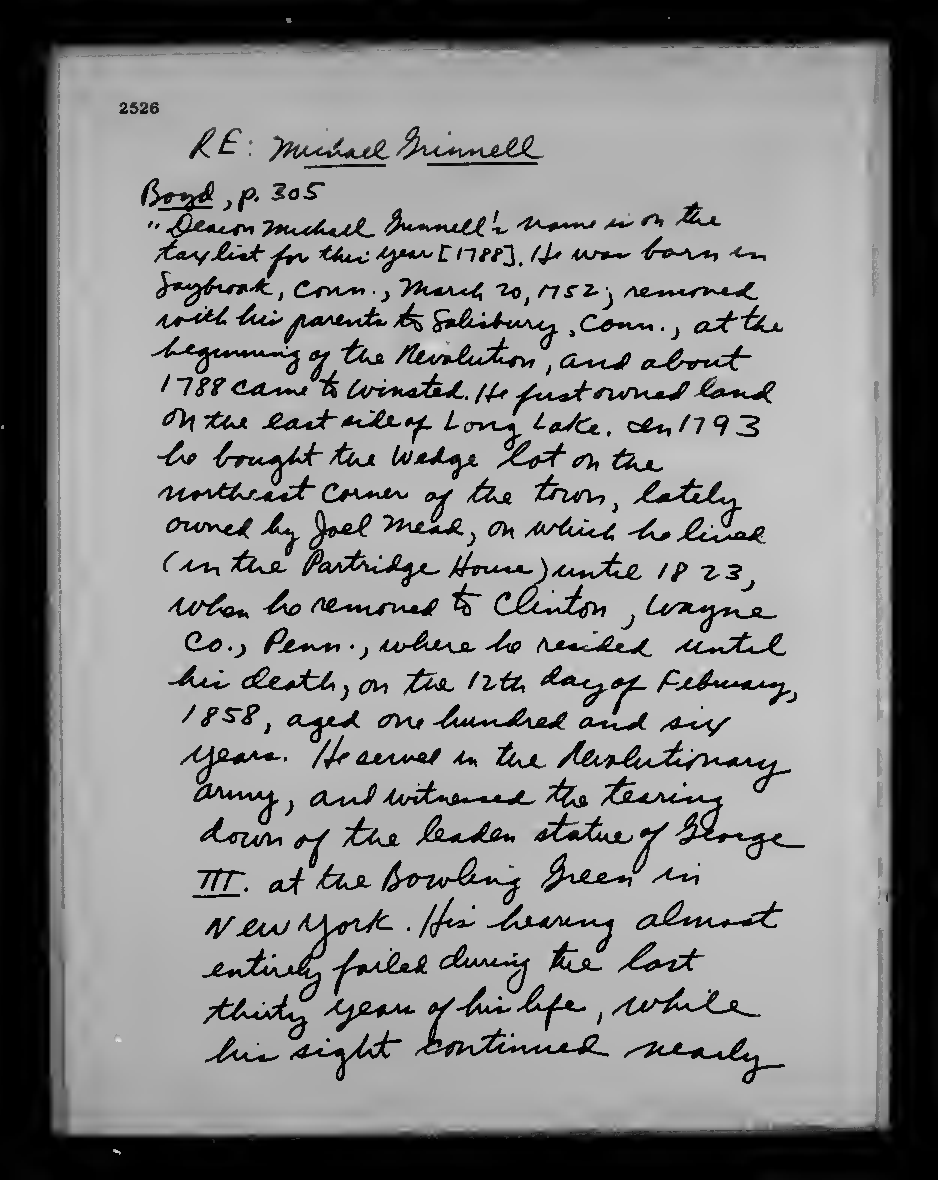 2526
RE: Michael Grinnell
Boyd, p. 305
"Deacon Michael Grinnell's name is on the
tax list for this year [1788]. He was born in
Saybrook, Conn., March 20, 1752; removed
with his parents to Salisbury, Conn., at the
beginning of the Revolution, and about
1788 came to Winsted. He first owned land
on the east side of Long Lake. In 1793
he bought the Wedge lot on the
northeast corner of the town, lately
owned by Joel Mead, on which he lived
(in the Partridge House) until 1823,
when he removed to Clinton, Wayne
Co., Penn., where he resided until
his death, on the 12th day of February,
1858, aged one hundred and six
years. He served in the Revolutionary
army, and witnessed the tearing
down of the leaden statue of George
III. at the Bowling Green in
New York. His hearing almost
entirely failed during the last
thirty years of his life, while
his sight continued nearly